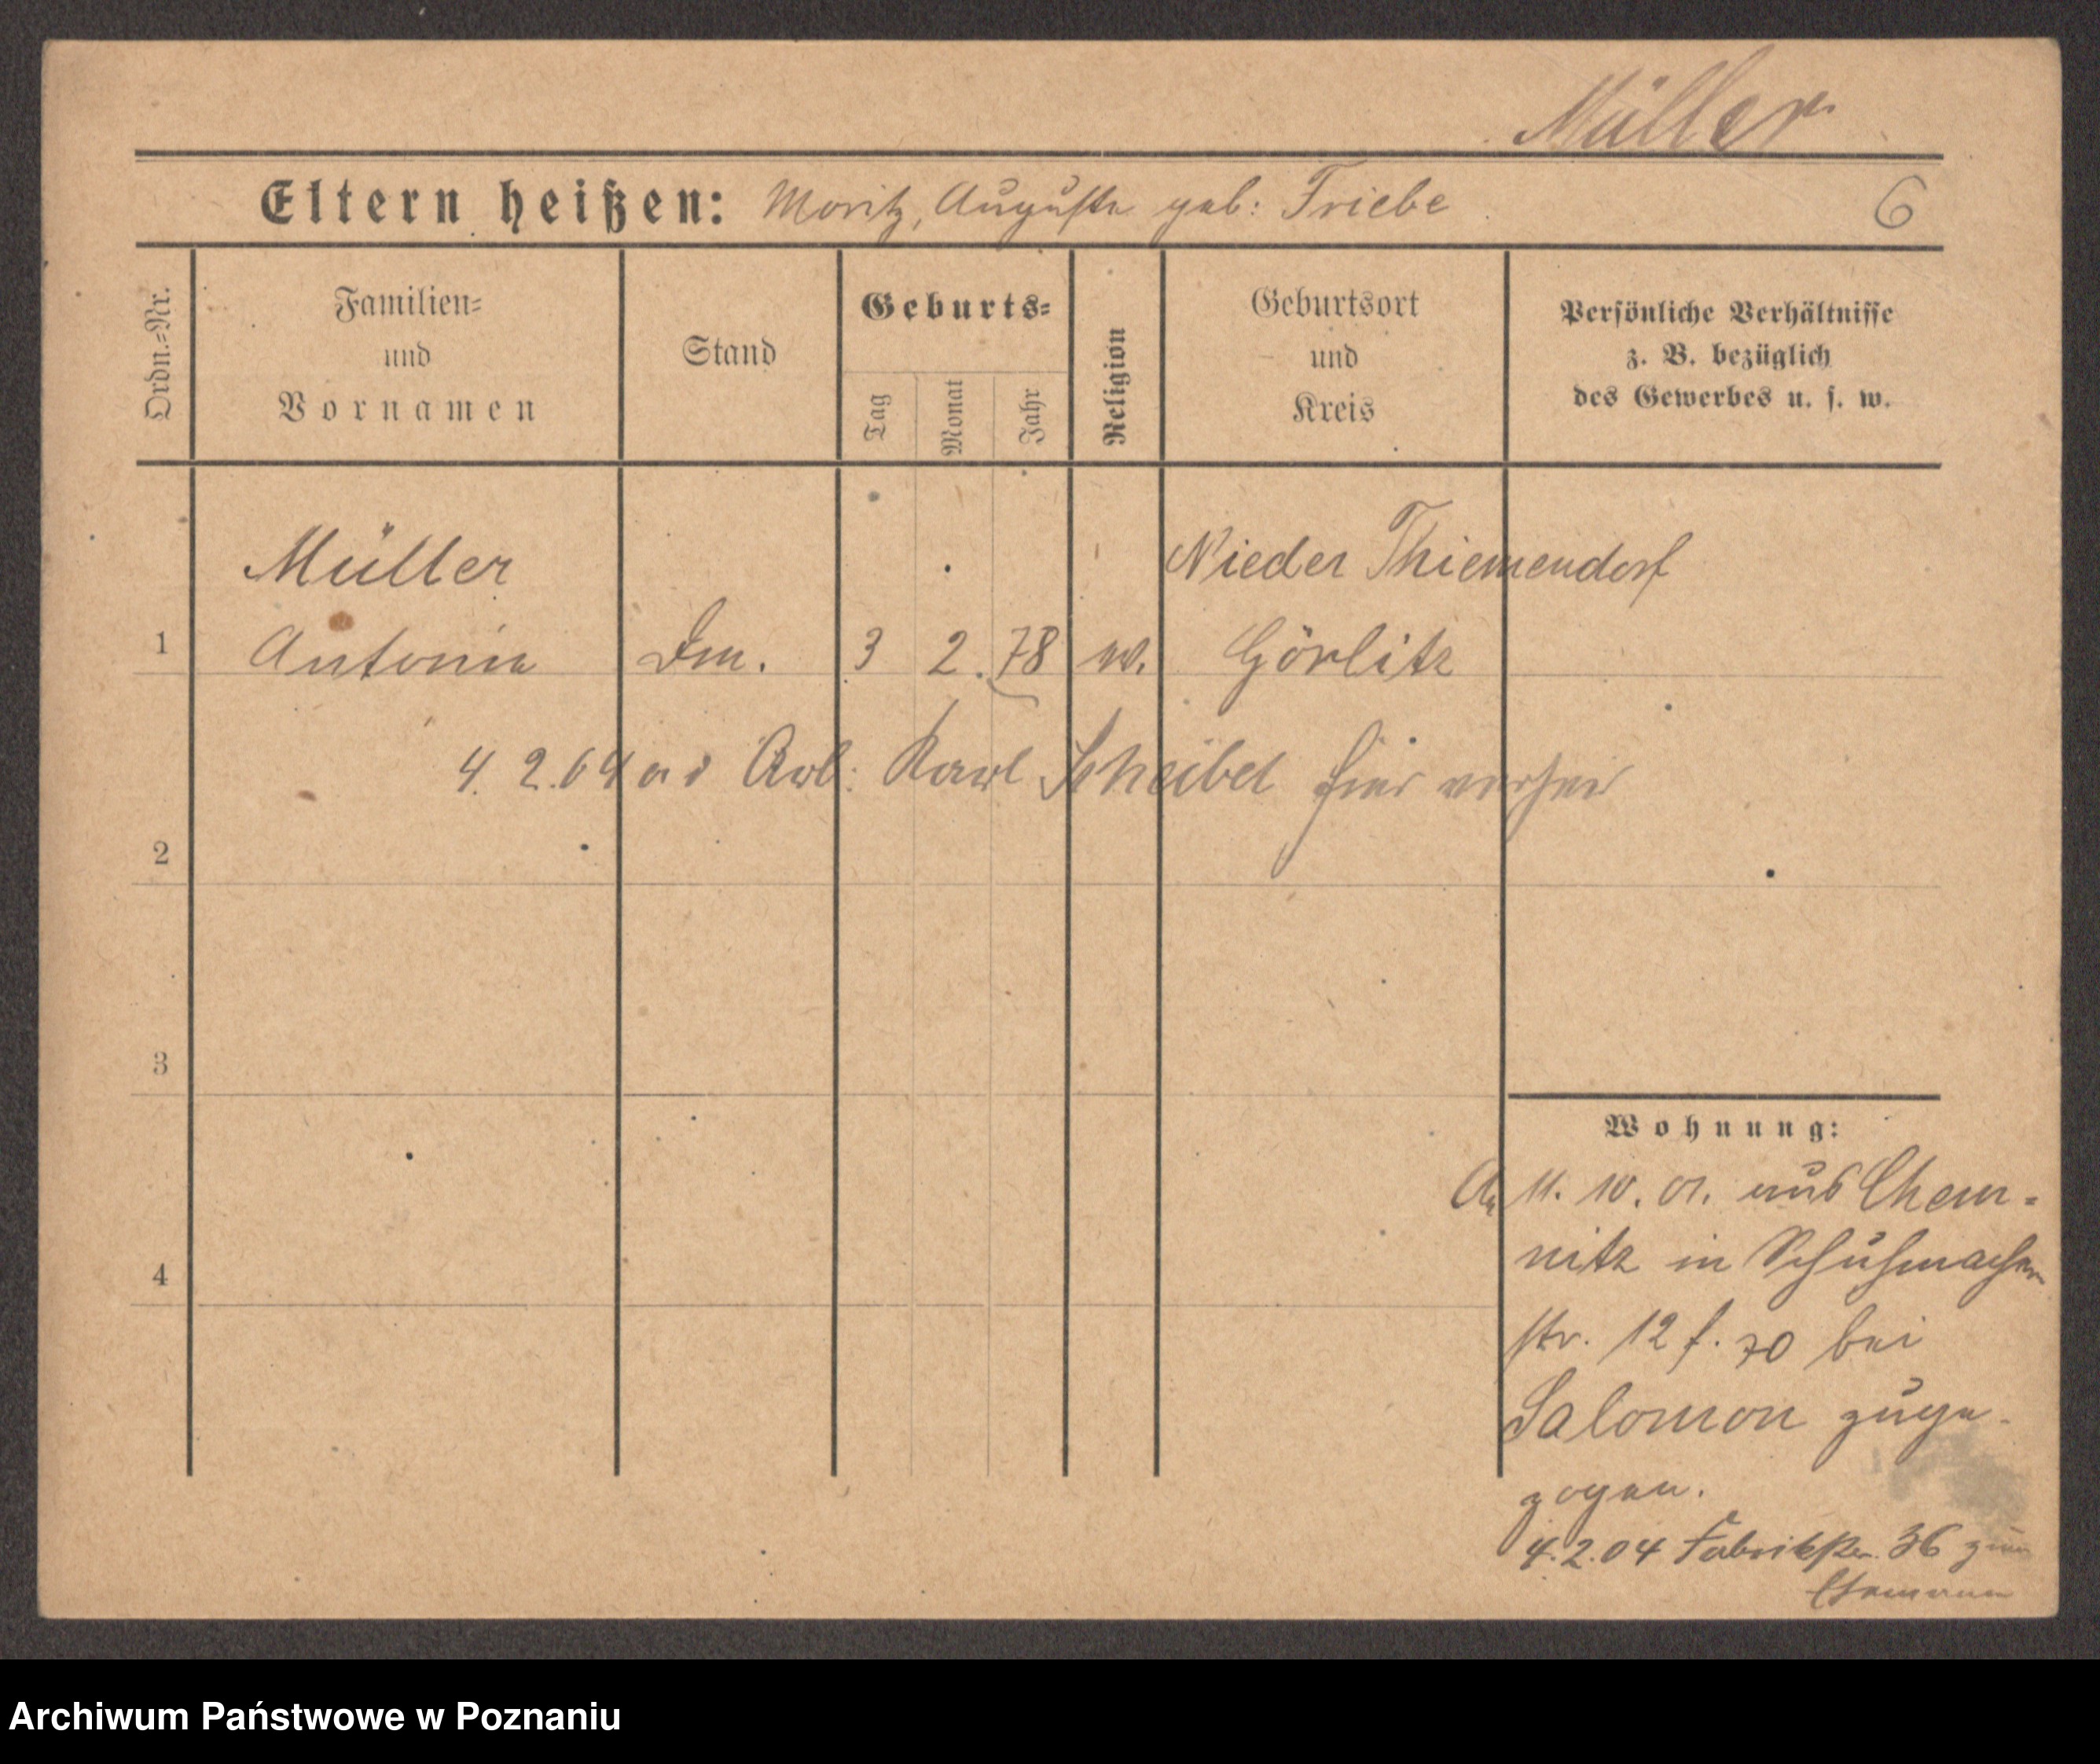 Müller
Eltern heißen: Moritz, Auguste geb: Friebe 6
Ordn.=Nr.
Familien=
und
Vornamen
Stand
Geburts=
Tag
Monat
Jahr
Religion
Geburtsort
und
Kreis
Persönliche Verhältnisse
z. B. bezüglich
des Gewerbes u. s. w.
Müller Nieder Thiemendorf
1 Antonie Dm. 3 2. 78 Görlitz
4. 2. 04 Arb: Karl Scheibel hier verheir
2
3
4
Wohnung:
An 11. 10. 01. aus Chem=
nitz in Schuhmacher
str. 12 f. 70 bei
Salomon zuge-
zogen.
4.2.04 Fabrikstr. 36 zum
Ehemann
Archiwum Państwowe w Poznaniu